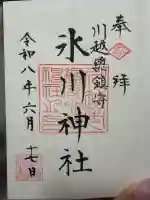 奉拝
川越總鎮守
氷川神社
令和八年六月十七日